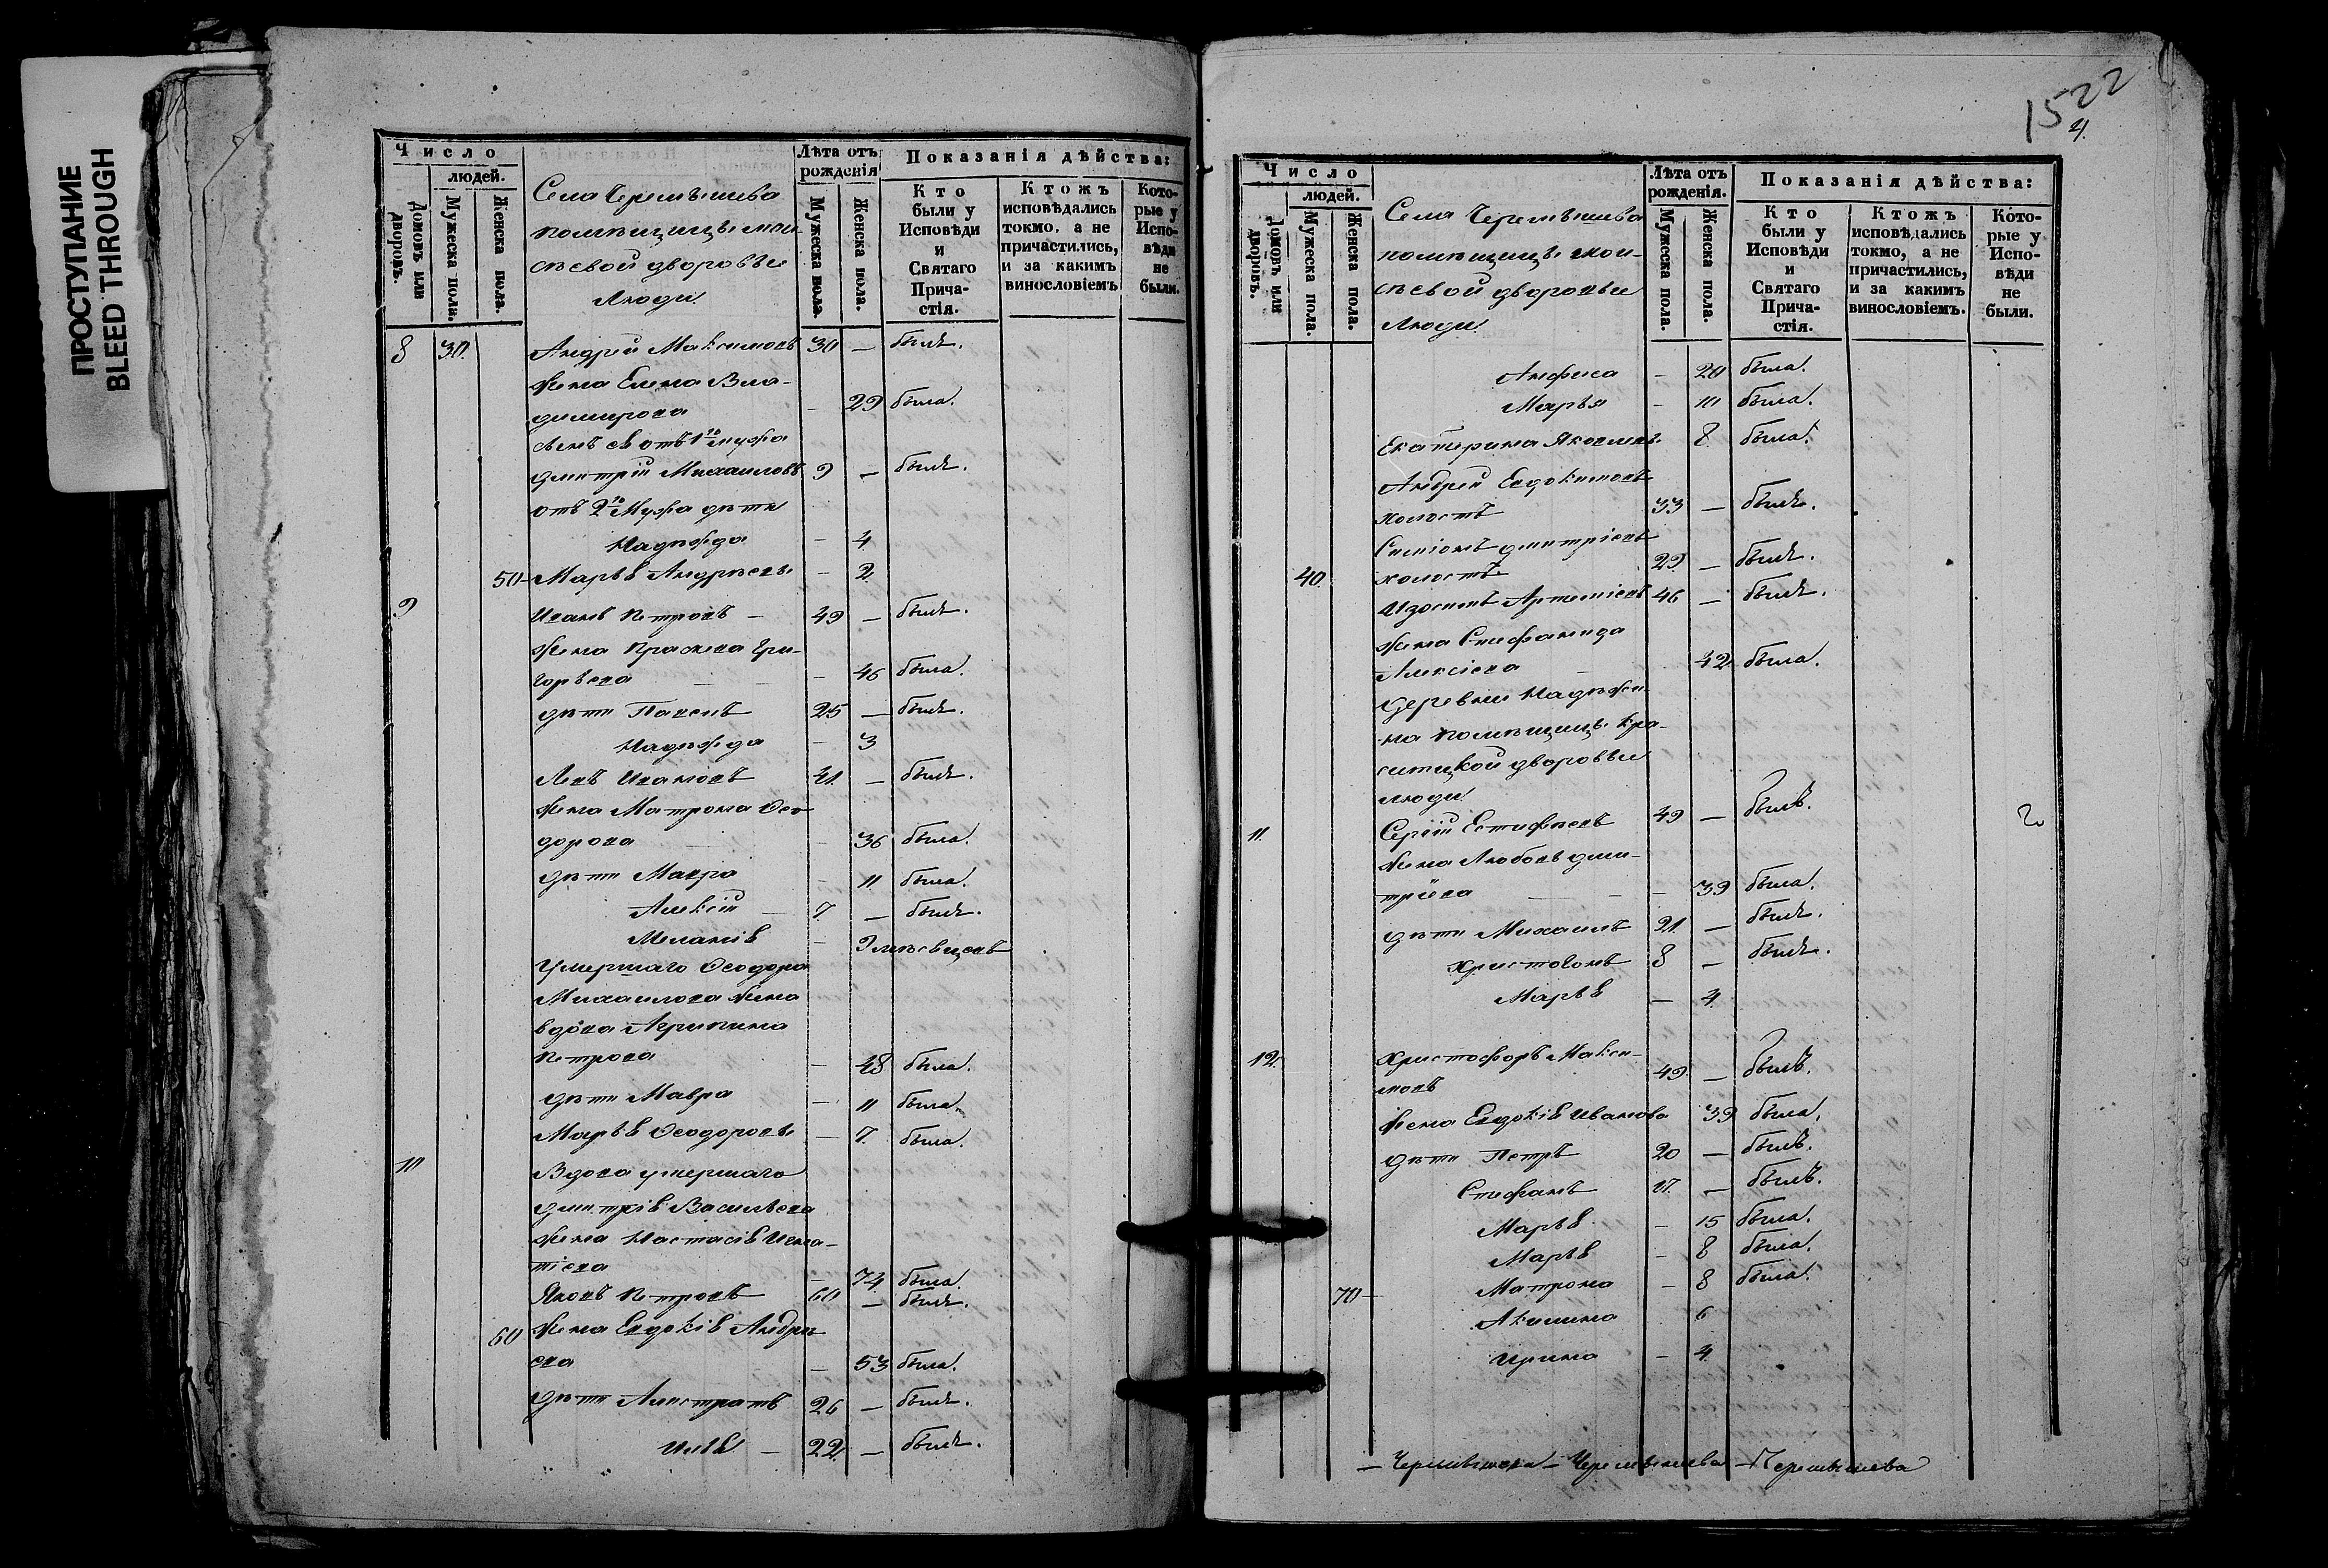 ПРОСТУПАНИЕ
BLEED THROUGH
Число
людей.
Домовъ или дворовъ.
Мужеска пола.
Женска пола.
Села Черемышева
помѣщицы мои-
сѣевой дворовые
Люди
Лѣта отъ рожденія
Мужеска пола.
Женска пола.
Показанія дѣйства:
Кто были у Исповѣди и Святаго Прича-стія.
Ктожъ исповѣдались токмо, а не причастились, и за какимъ винословіемъ
Кото-рые у Испо-вѣди не были.
8 30. Андрей Максимовъ 30 — былъ.
жена Елена Вла-
димирова — 29 была.
сынъ ея отъ 1го мужа
Дмитрій Михаиловъ 9 — былъ.
отъ 2го Мужа дѣти
Надѣжда — 4
50 Марья Андрѣева — 2
9 Иванъ Петровъ — 49 — былъ.
жена Прасковa Гри-
горьева — 46 была.
дѣти Павелъ 25 — былъ.
Надѣжда — 3
Левъ Ивановъ 41 — былъ.
жена Матрона Ѳео-
дорова — 36 была.
дѣти Мавра — 11 была.
Алексій 7 — былъ.
Меланія — 9 мѣсяцевъ
Умершаго Ѳеодора
Михаилова жена
вдова Агрипина
Петрова — 48 была.
дѣти Мавра — 11 была.
Марья Ѳеодорова — 7 была.
10 Вдова умершаго
Дмитрія Васильева
жена Настасія Игна-
тіева — 74 была.
Яковъ Петровъ 60 — былъ.
60 жена Евдокія Андрѣ
ева — 53 была.
дѣти Алистратъ 26 — былъ.
Илья — 22 — былъ.
1522
4.
Число
людей.
Домовъ или дворовъ.
Мужеска пола.
Женска пола.
Села Черемышева
помѣщицы мои-
сѣевой дворовые
Люди
Лѣта отъ рожденія.
Мужеска пола.
Женска пола.
Показанія дѣйства:
Кто были у Исповѣди и Святаго Прича-стія.
Ктожъ исповѣдались токмо, а не причастились, и за какимъ винословіемъ.
Кото-рые у Испо-вѣди не были.
Анфиса — 20 была.
Марья — 10 была.
Екатерина Яковлева 8 была.
Андрей Евдокимовъ
холостъ 33 — былъ.
Симіонъ Дмитріевъ
40. холостъ 29 — былъ.
Изосимъ Артеміевъ 46 — былъ.
жена Стефанида
Алексіева — 42 была.
Деревни Надѣжи-
на помѣщицы Кра-
ситцкой дворовые
люди
11. Сергій Естифѣевъ 49 — былъ.
жена Любовь Дми-
тріева — 39 была.
дѣти Михаилъ 21 — былъ.
Христогонъ 8 — былъ.
Марья — 4
12 Христофоръ Макси-
мовъ 49 — былъ.
жена Евдокія Иванова 39 была.
дѣти Петръ 20 — былъ.
Стефанъ 17. — былъ.
Марья — 15 была.
Марья — 8 была.
70 Матрона — 8 была.
Акилина 6
Ирина — 4
— Черемышева — Черемышева — Черемышева